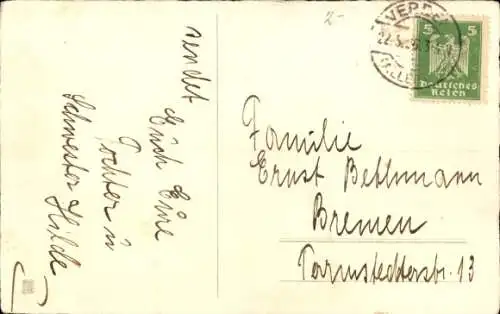 sendet
Euch Eure
Tochter u
Schwester Hilde
2-
VERDEN
22.5.26.3
(ALLER)
5 5
Deutsches
Reich
Familie
Ernst Bethmann
Bremen
Parmstedterstr. 13